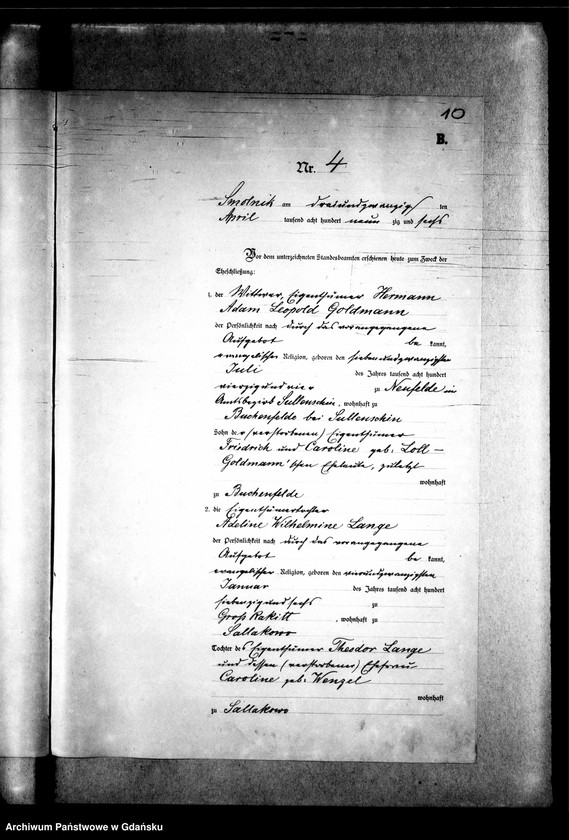 10
B.
Nr. 4
Smolnik am dreiundzwanzigsten
April tausend acht hundert neunzig und sechs
Vor dem unterzeichneten Standesbeamten erschienen heute zum Zweck der
Eheschließung:
1. der Wittwer, Eigenthümer Hermann
Adam Leopold Goldmann
der Persönlichkeit nach durch das vorangegangene
Aufgebot be kannt,
evangelischer Religion, geboren den siebenundzwanzigsten
Juli des Jahres tausend acht hundert
vierzigundvier zu Neufelde im
Amtsbezirk Sullenschin, wohnhaft zu
Buchenfelde bei Sullenschin
Sohn der (verstorbenen) Eigenthümer
Friedrich und Caroline geb: Loll-
Goldmann'schen Eheleute, zuletzt
wohnhaft
zu Buchenfelde
2. die Eigenthümertochter
Adeline Wilhelmine Lange
der Persönlichkeit nach durch das vorangegangene
Aufgebot be kannt,
evangelischer Religion, geboren den vierundzwanzigsten
Januar des Jahres tausend acht hundert
siebenzigundsechs zu
Groß Rakitt, wohnhaft zu
Sallakowo
Tochter des Eigenthümer Theodor Lange
und dessen (verstorbener) Ehefrau
Caroline geb: Wenzel
wohnhaft
zu Sallakowo
Archiwum Państwowe w Gdańsku